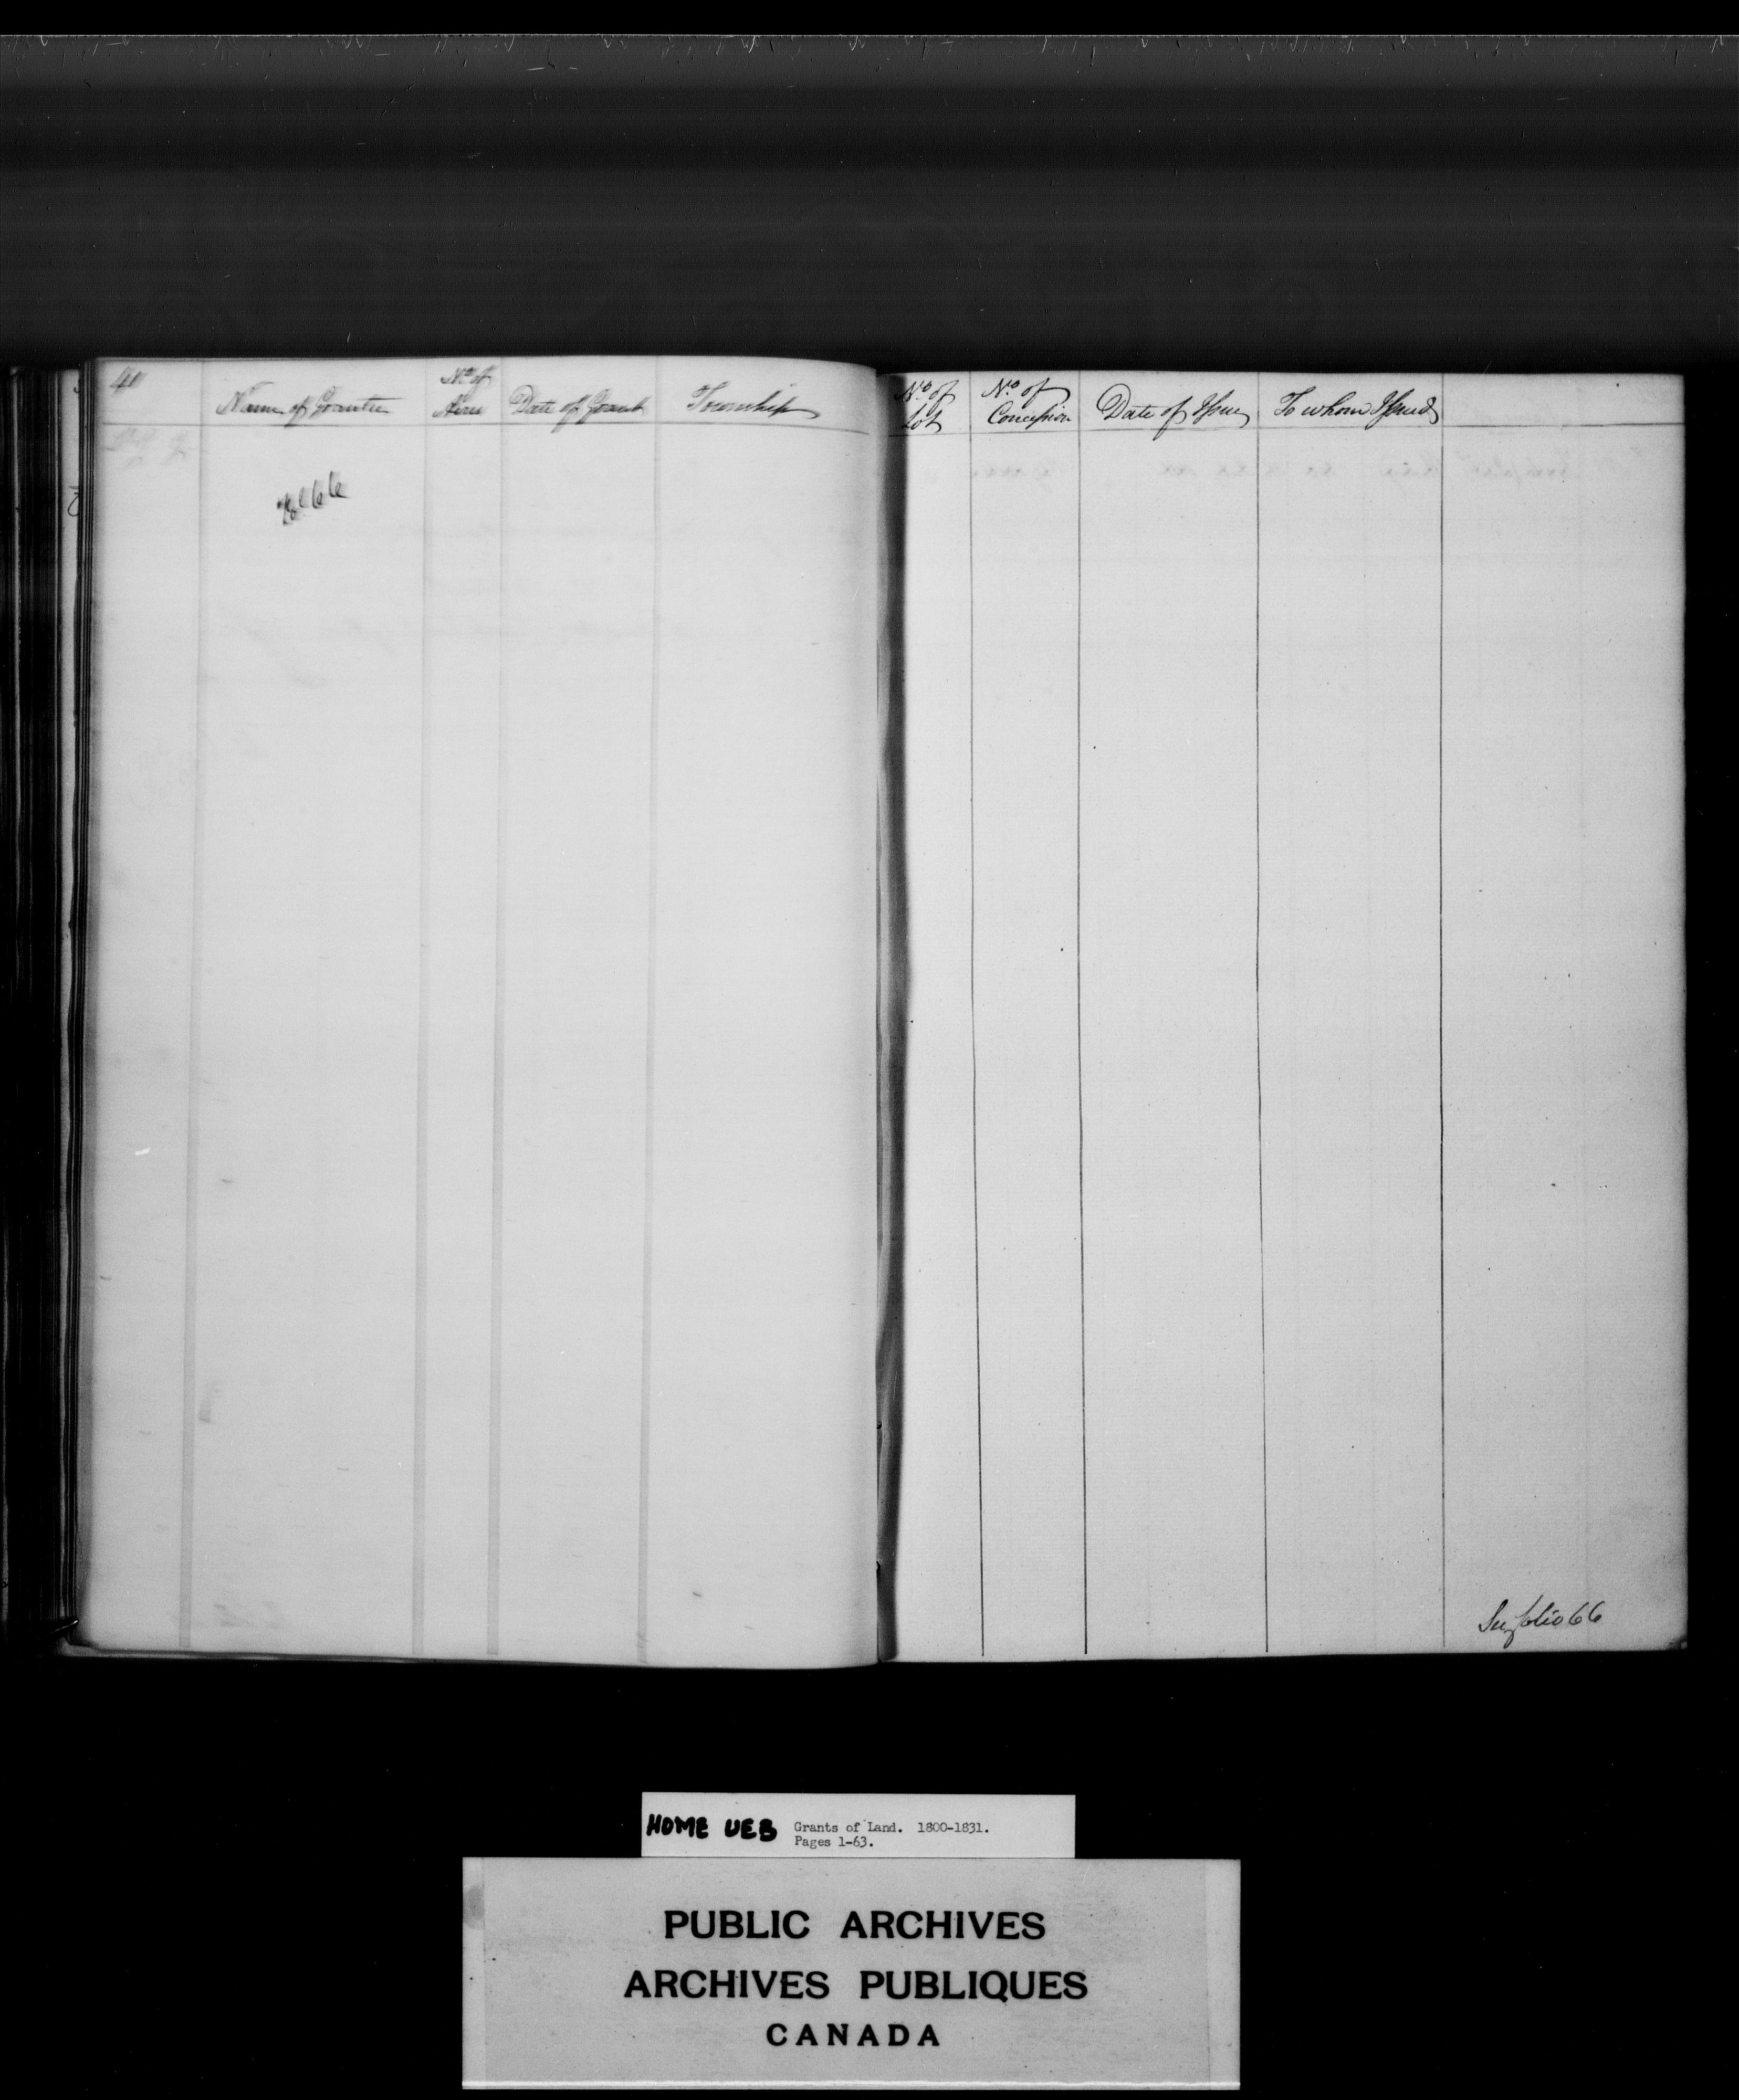 40
Name of Grantee
No. of
Acres
Date of Grant
Township
Fol. 66
No. of
Lot
No. of
Concession
Date of Issue
To whom Issued
See folio 66
HOME UEB
Grants of Land. 1800-1831.
Pages 1-63.
PUBLIC ARCHIVES
ARCHIVES PUBLIQUES
CANADA